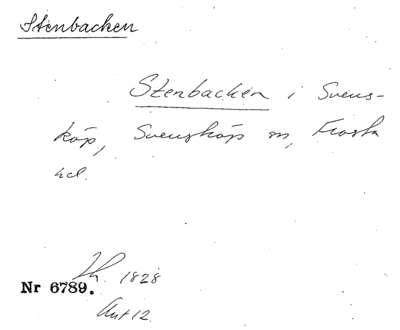 Stenbacken
Stenbacken i Svens-
köp, Svensköps sn, Frosta
hd.
1828
Nr 6789.
Akt 12.